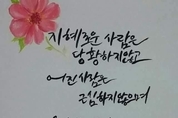 지혜로운 사람은
당황하지않고
어진 사람은
근심하지않으며